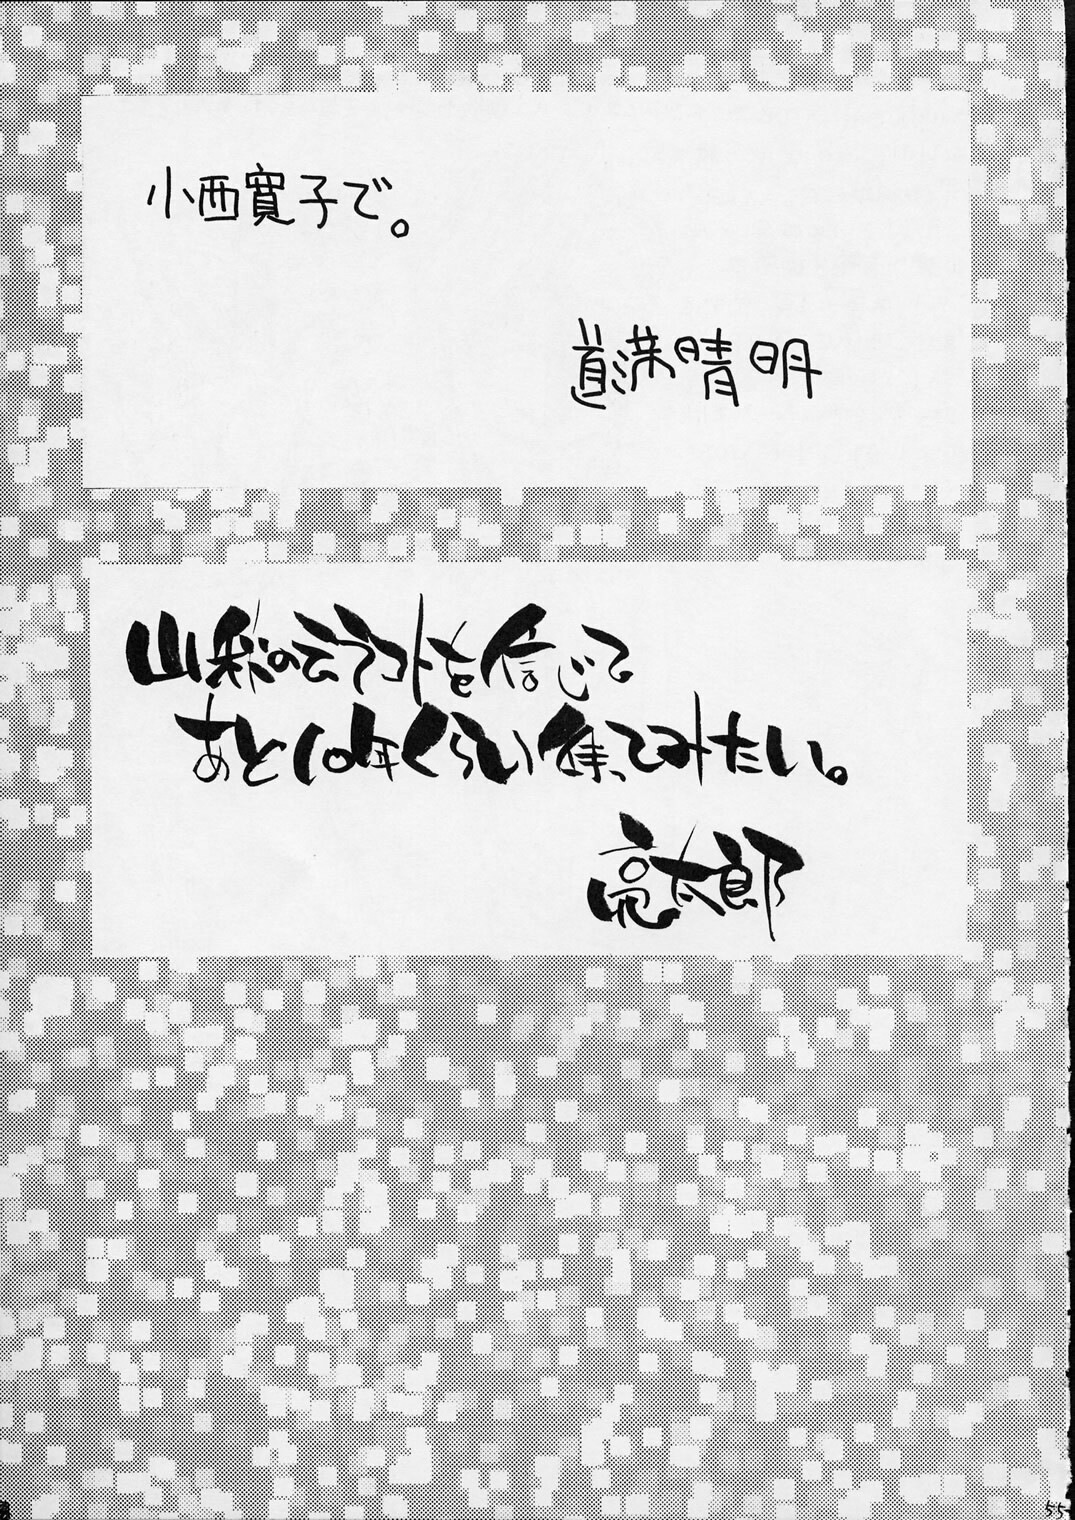 小西寛子で。
道満晴明
山彩のテラコトを信じて
あと10年くらい待ってみたい。
亮太郎
55